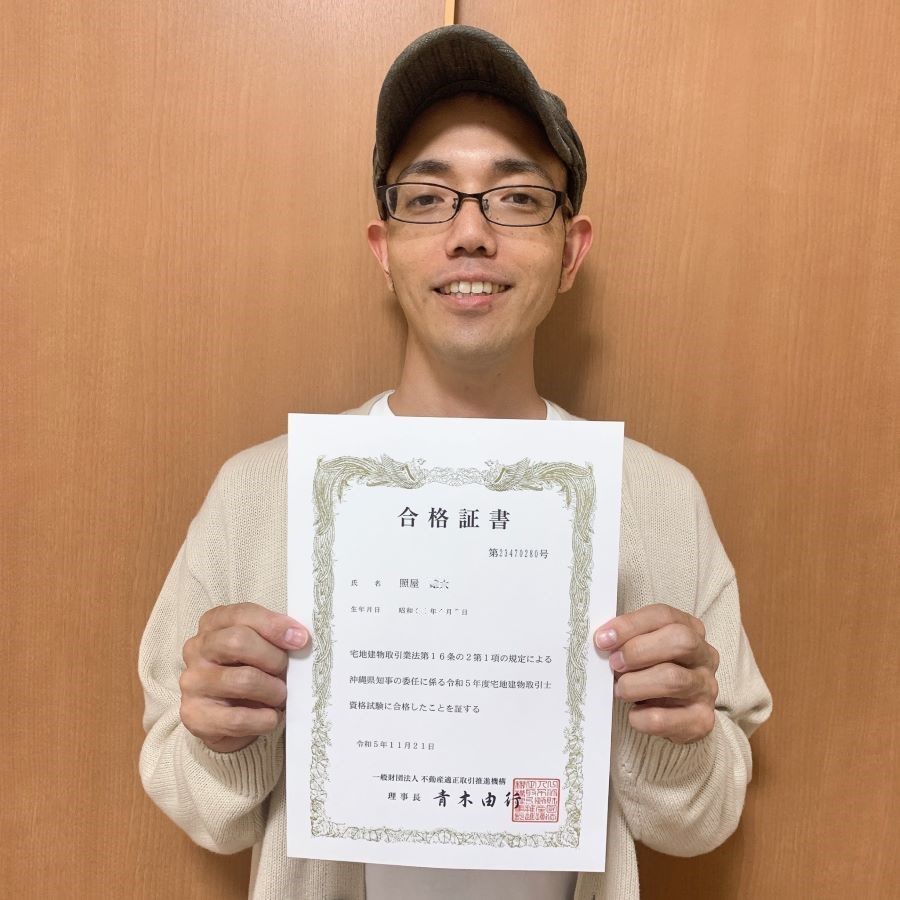 合格証書
第23470280号
氏名 照屋
生年月日 昭和 年 月 日
宅地建物取引業法第16条の2第1項の規定による
沖縄県知事の委任に係る令和5年度宅地建物取引士
資格試験に合格したことを証する
令和5年11月21日
一般財団法人 不動産適正取引推進機構
理事長 青木由行